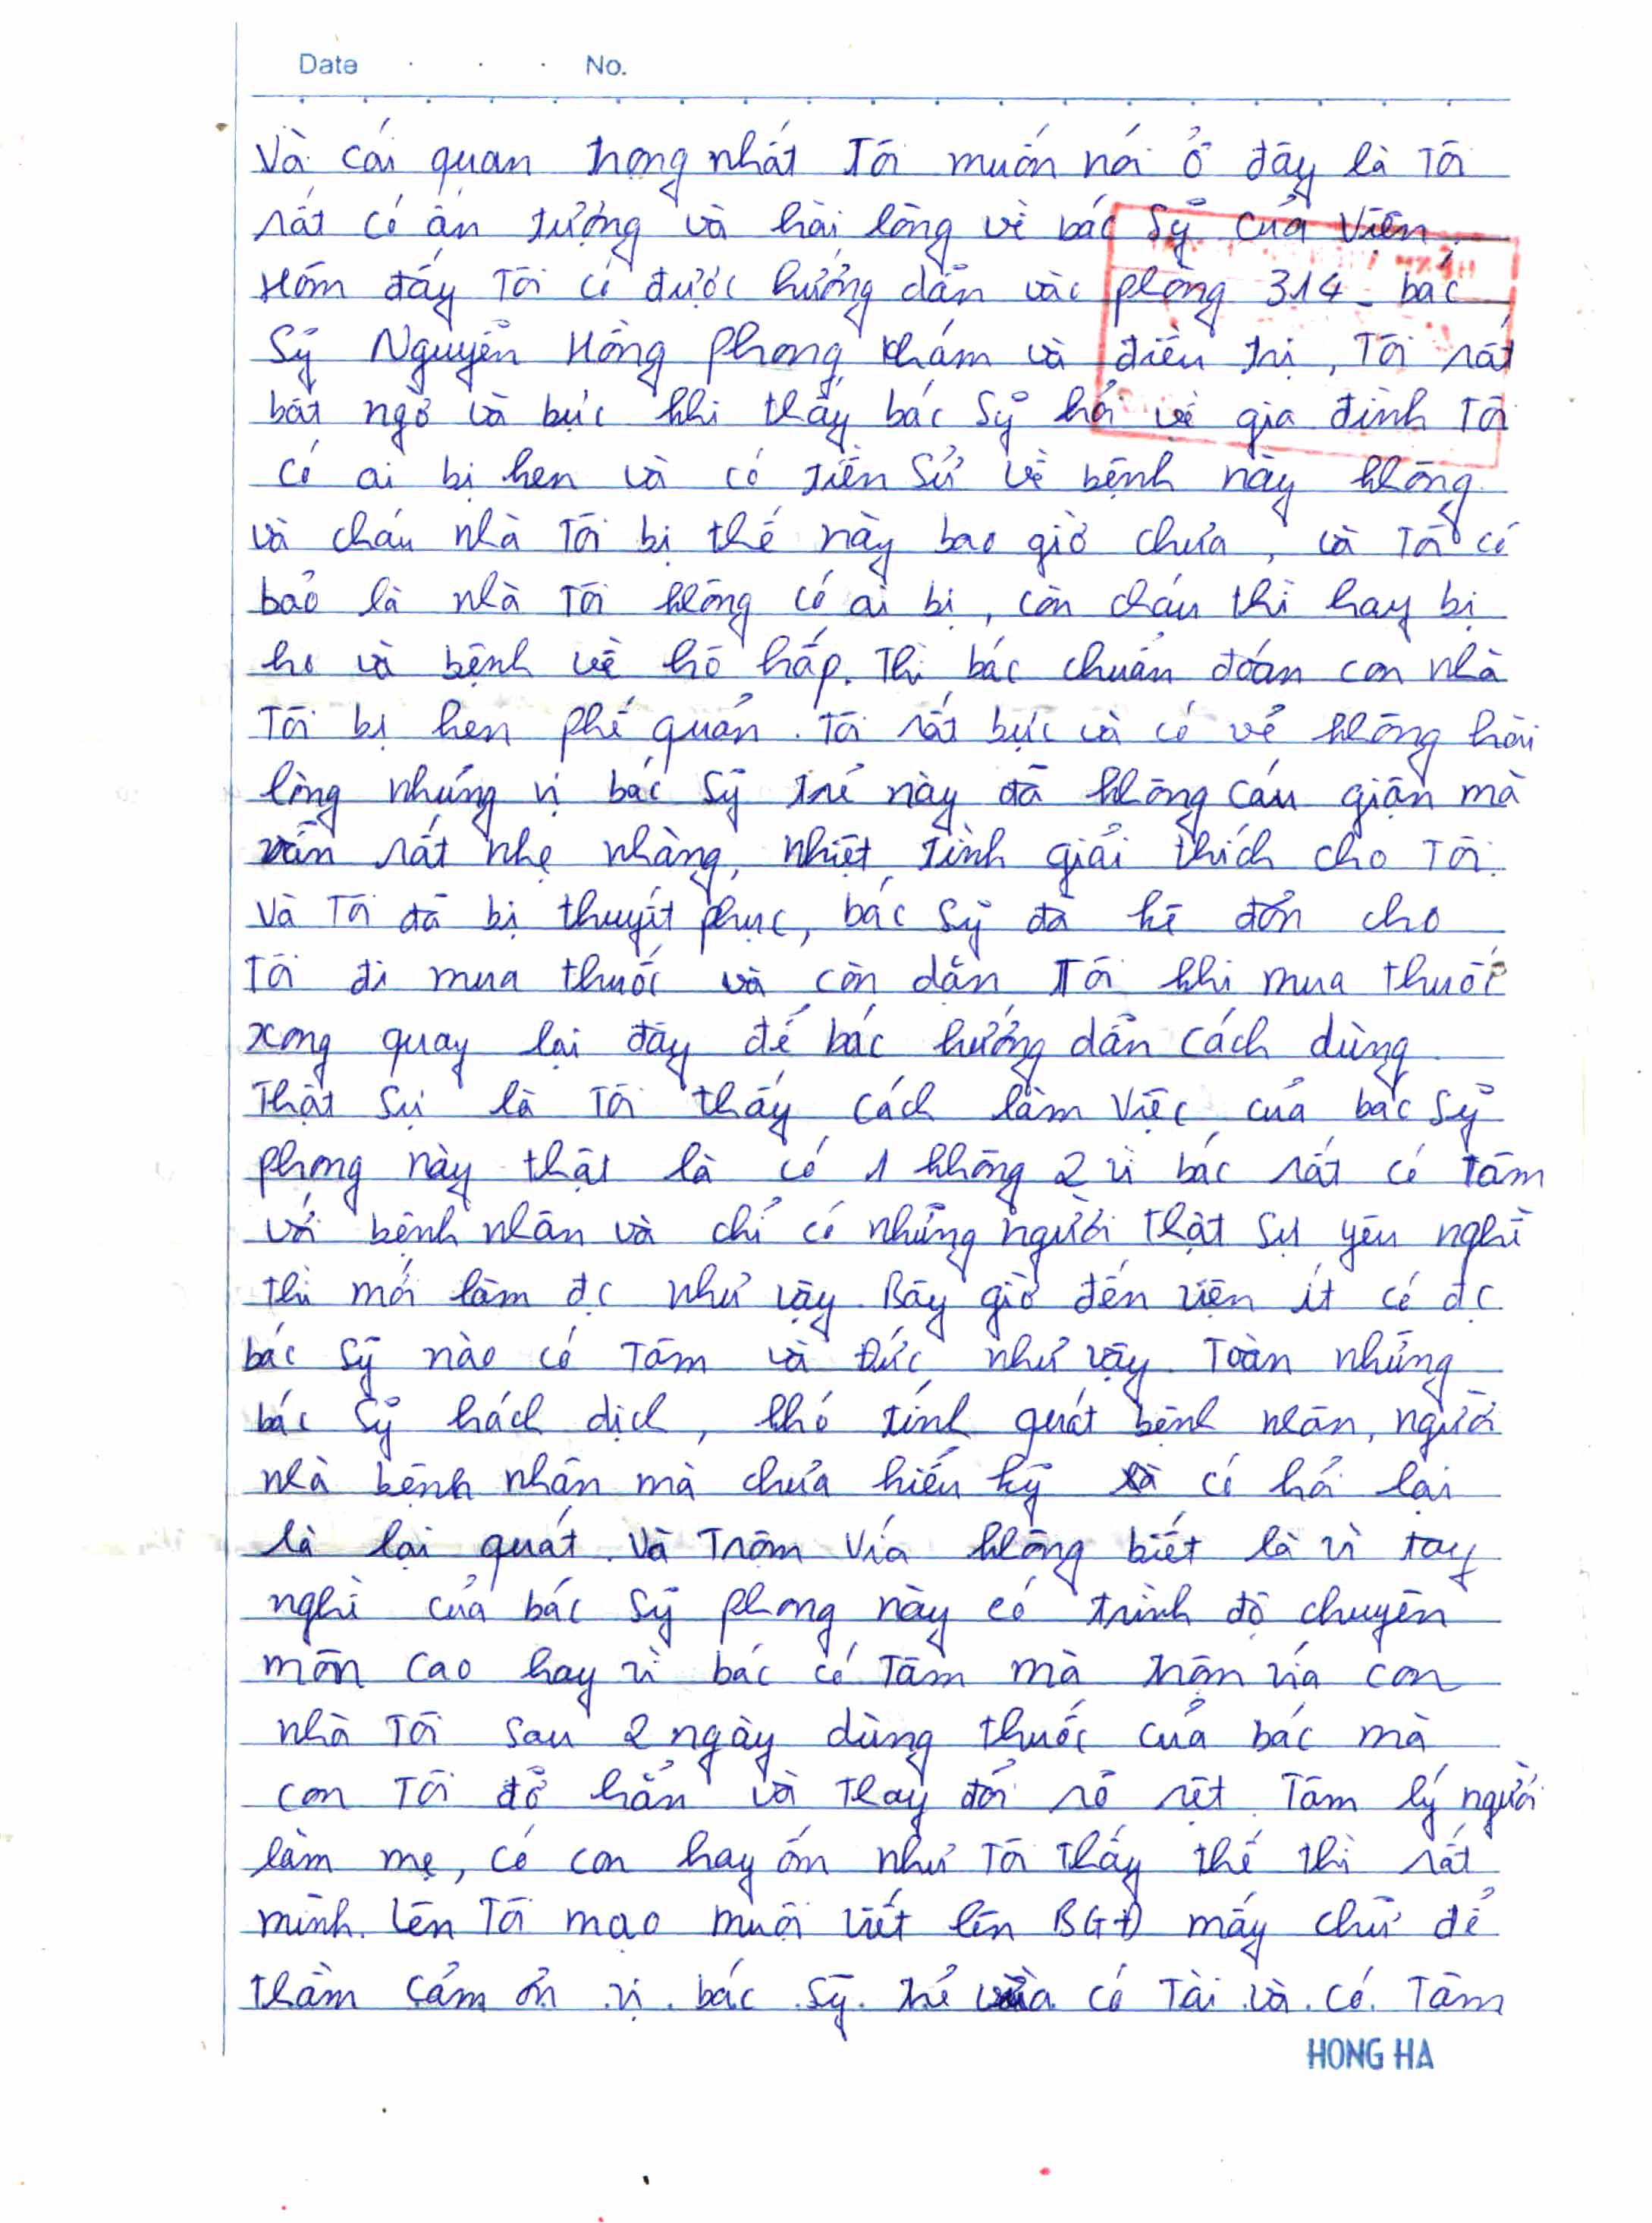 Date . . . No.
Và cái quan trọng nhất Tôi muốn nói ở đây là Tôi
rất có ấn tượng và hài lòng về bác sỹ của Viện.
Hôm đấy Tôi có được hướng dẫn vào phòng 314 - bác
Sỹ Nguyễn Hồng Phong khám và điều trị, Tôi rất
bất ngờ và bực khi thấy bác sỹ hỏi về gia đình Tôi
có ai bị hen và có tiền sử về bệnh này không
và cháu nhà Tôi bị thế này bao giờ chưa, và Tôi có
bảo là nhà Tôi không có ai bị, còn cháu thì hay bị
ho và bệnh về hô hấp. Thì bác chuẩn đoán con nhà
Tôi bị hen phế quản. Tôi rất bực và có vẻ không hài
lòng nhưng vị bác sỹ trẻ này đã không cáu giận mà
vẫn rất nhẹ nhàng, nhiệt tình giải thích cho Tôi.
Và Tôi đã bị thuyết phục, bác sỹ đã kê đơn cho
Tôi đi mua thuốc và còn dặn Tôi khi mua thuốc
xong quay lại đây để bác hướng dẫn cách dùng
Thật sự là Tôi thấy cách làm việc của bác sỹ
phong này thật là có 1 không 2 vì bác rất có tâm
với bệnh nhân và chỉ có những người thật sự yêu nghề
thì mới làm đc như vậy. Bây giờ đến viện ít có đc
bác sỹ nào có Tâm và Đức như vậy. Toàn những
bác sỹ hách dịch, khó tính quát bệnh nhân, người
nhà bệnh nhân mà chưa hiểu kỹ có hỏi lại
là lại quát. Và Trộm Vía không biết là vì tay
nghề của bác sỹ phong này có trình độ chuyên
môn cao hay vì bác có Tâm mà trộm vía con
nhà Tôi sau 2 ngày dùng thuốc của bác mà
con Tôi đỡ hẳn và Thay đổi rõ rệt. Tâm lý người
làm mẹ, có con hay ốm như Tôi thấy thế thì rất
mình. Lên Tôi mạo muội viết lên BGĐ mấy chữ để
thầm cảm ơn vị bác sỹ trẻ vừa có Tài và có Tâm
HONG HA